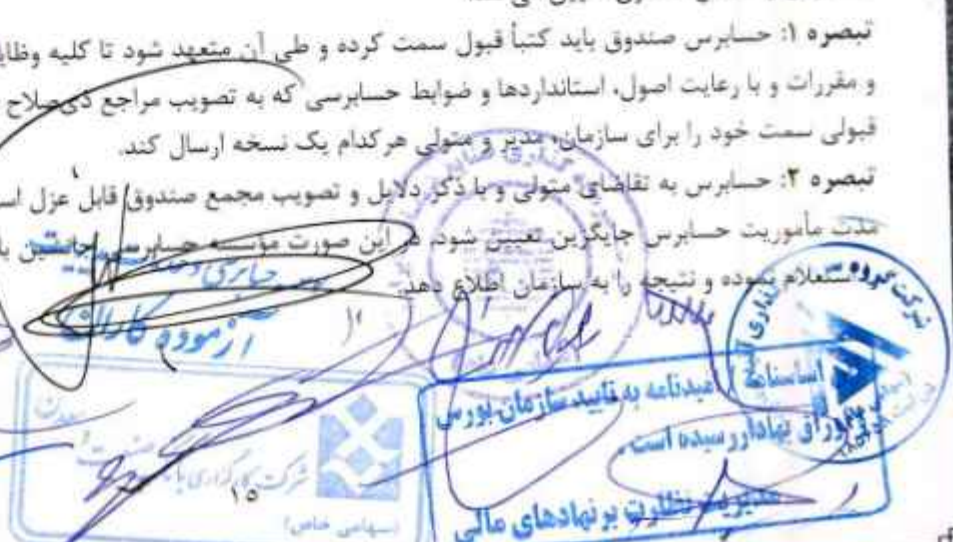 تبصره ۱: حسابرس صندوق باید کتباً قبول سمت کرده و طی آن متعهد شود تا کلیه
و مقررات و با رعایت اصول، استانداردها و ضوابط حسابرسی که به تصویب مراجع ذی‌صلاح
قبولی سمت خود را برای سازمان، مدیر و متولی هرکدام یک نسخه ارسال کند.
تبصره ۲: حسابرس به تقاضای متولی و با ذکر دلایل و تصویب مجمع صندوق قابل عزل
مدت مأموریت حسابرس جایگزین تعیین شود. در این صورت مؤسسه حسابرسی جانشین
استعلام نموده و نتیجه را به سازمان اطلاع دهد.
حسابرسی و
آزموده کاران
شرکت گروه
اساسنامه / امیدنامه به تایید سازمان بورس
اوراق بهادار رسیده است.
مدیریت نظارت بر نهادهای مالی
شرکت کارگزاری
(سهامی خاص)
۱۵